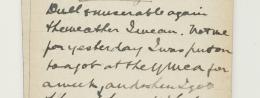 Dull & miserable again
the weather I mean. Not me
for yesterday I was put on
to a job at the YMCA for
a week, and when I get